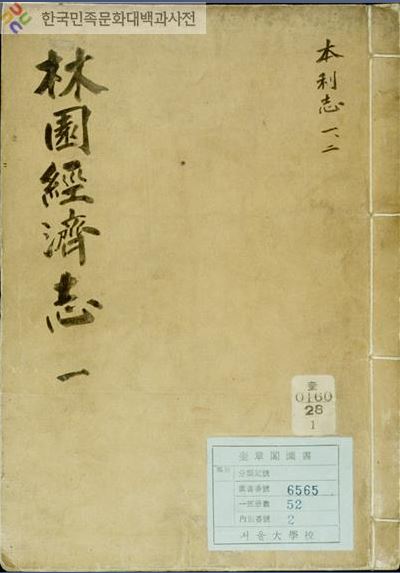 한국민족문화대백과사전
林園經濟志 一
本利志 一、二
奎
0160
28
1
奎章閣圖書
分類記號
圖書番號 6565
一部冊數 52
內別番號 2
서울大學校